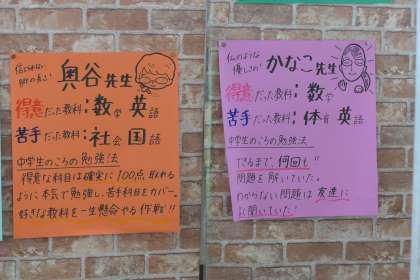 奥谷先生
得意だった教科:数学 英語
苦手だった教科:社会 国語
中学生のころの勉強法
得意な科目は確実に100点取れる
ように本気で勉強し、苦手科目をカバー。
好きな教科を一生懸命やる作戦!!
仏のような
優しさの!
かなこ先生
得意だった教科:数学
苦手だった教科:体育 英語
中学生のころの勉強法
できるまで、何回も!!
問題を解いていた。
わからない問題は友達に
聞いていた!